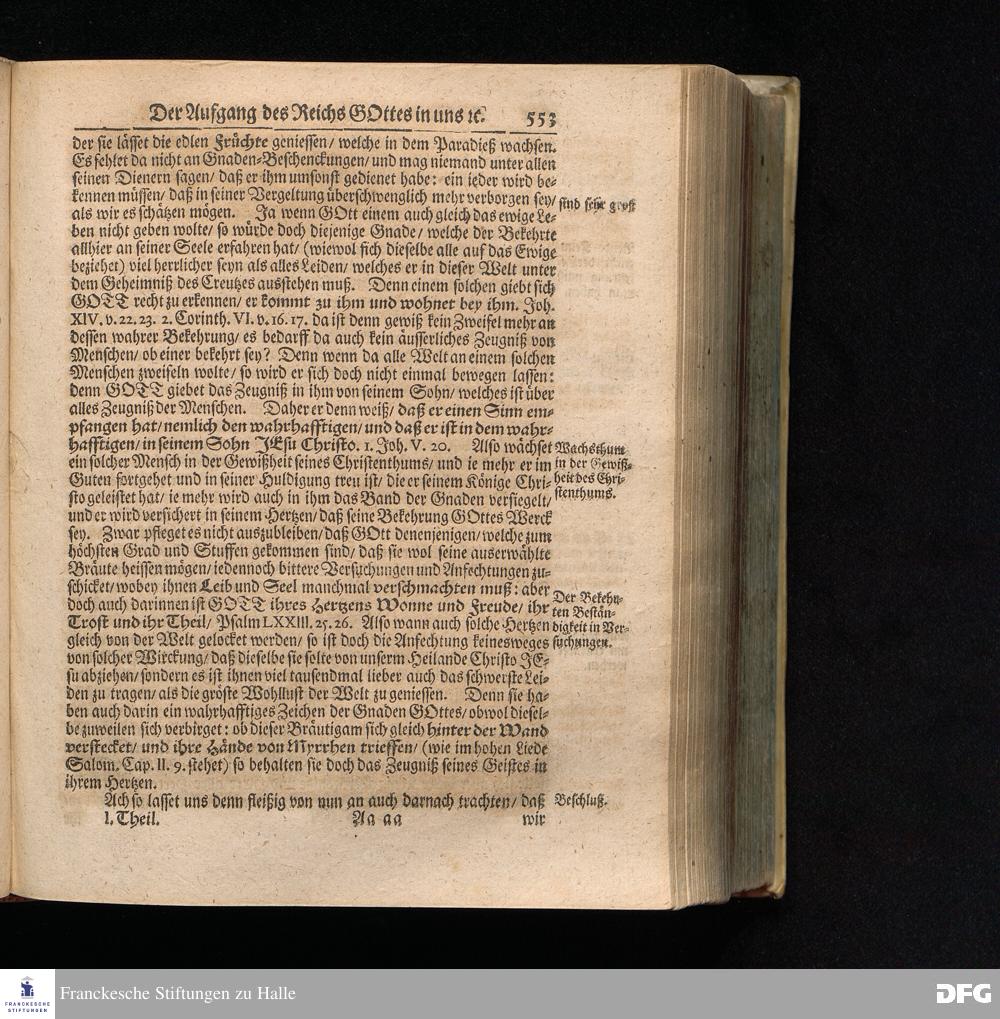 Der Aufgang des Reichs GOttes in uns ꝛc. 553
der sie lässet die edlen Früchte geniessen/ welche in dem Paradieß wachsen.
Es fehlet da nicht an Gnaden-Beschenckungen/ und mag niemand unter allen
seinen Dienern sagen/ daß er ihm umsonst gedienet habe: ein ieder wird be-
kennen müssen/ daß in seiner Vergeltung überschwenglich mehr verborgen sey/
sind sehr groß
als wir es schätzen mögen. Ja wenn GOtt einem auch gleich das ewige Le-
ben nicht geben wolte/ so würde doch diejenige Gnade/ welche der Bekehrte
allhier an seiner Seele erfahren hat/ (wiewol sich dieselbe alle auf das Ewige
beziehet) viel herrlicher seyn als alles Leiden/ welches er in dieser Welt unter
dem Geheimniß des Creutzes ausstehen muß. Denn einem solchen giebt sich
GOTT recht zu erkennen/ er kommt zu ihm und wohnet bey ihm. Joh.
XIV. v. 22. 23. 2. Corinth. VI. v. 16. 17. da ist denn gewiß kein Zweifel mehr an
dessen wahrer Bekehrung/ es bedarff da auch kein äusserliches Zeugniß von
Menschen/ ob einer bekehrt sey? Denn wenn da alle Welt an einem solchen
Menschen zweifeln wolte/ so wird er sich doch nicht einmal bewegen lassen:
denn GOTT giebet das Zeugniß in ihm von seinem Sohn/ welches ist über
alles Zeugniß der Menschen. Daher er denn weiß/ daß er einen Sinn em-
pfangen hat/ nemlich den wahrhafftigen/ und daß er ist in dem wahr-
hafftigen/ in seinem Sohn JEsu Christo. 1. Joh. V. 20. Also wächset
ein solcher Mensch in der Gewißheit seines Christenthums/ und ie mehr er im
Guten fortgehet und in seiner Huldigung treu ist/ die er seinem Könige Chri-
sto geleistet hat/ ie mehr wird auch in ihm das Band der Gnaden versiegelt/
und er wird versichert in seinem Hertzen/ daß seine Bekehrung GOttes Werck
sey. Zwar pfleget es nicht auszubleiben/ daß GOtt denenjenigen/ welche zum
Wachsthum
in der Gewiß-
heit des Chri-
stenthums.
höchsten Grad und Stuffen gekommen sind/ daß sie wol seine auserwählte
Bräute heissen mögen/ iedennoch bittere Versuchungen und Anfechtungen zu-
schicket/ wobey ihnen Leib und Seel manchmal verschmachten muß: aber
doch auch darinnen ist GOTT ihres Hertzens Wonne und Freude/ ihr
Trost und ihr Theil/ Psalm LXXIII. 25. 26. Also wann auch solche Hertzen
gleich von der Welt gelocket werden/ so ist doch die Anfechtung keinesweges
Der Bekehr-
ten Bestän-
digkeit in Ver-
suchungen.
von solcher Wirckung/ daß dieselbe sie solte von unserm Heilande Christo JE-
su abziehen/ sondern es ist ihnen viel tausendmal lieber auch das schwerste Lei-
den zu tragen/ als die gröste Wohllust der Welt zu geniessen. Denn sie ha-
ben auch darin ein wahrhafftiges Zeichen der Gnaden GOttes/ obwol diesel-
be zuweilen sich verbirget: ob dieser Bräutigam sich gleich hinter der Wand
verstecket/ und ihre Hände von Myrrhen trieffen/ (wie im hohen Liede
Salom. Cap. II. 9. stehet) so behalten sie doch das Zeugniß seines Geistes in
ihrem Hertzen.
Ach so lasset uns denn fleißig von nun an auch darnach trachten/ daß
Beschluß.
I. Theil. Aa aa wir
FRANCKESCHE
STIFTUNGEN
Franckesche Stiftungen zu Halle
DFG